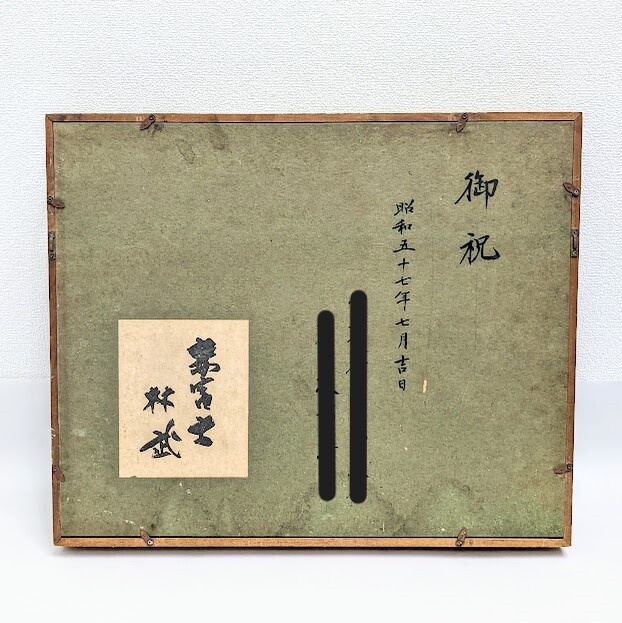 御祝
昭和五十七年七月吉日
赤富士
林武